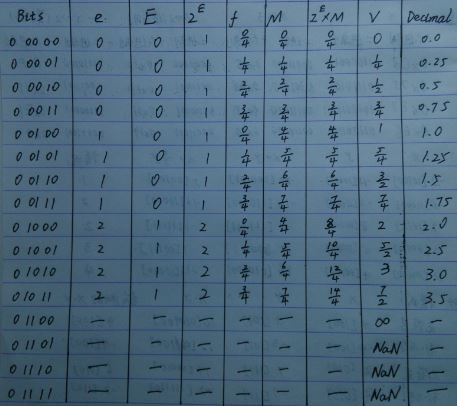 Bits e. E 2^E f M 2^E×M V Decimal
0 00 00 0 0 1 0/4 0/4 0/4 0 0.0
0 00 01 0 0 1 1/4 1/4 1/4 1/4 0.25
0 00 10 0 0 1 2/4 2/4 2/4 1/2 0.5
0 00 11 0 0 1 3/4 3/4 3/4 3/4 0.75
0 01 00 1 0 1 0/4 4/4 4/4 1 1.0
0 01 01 1 0 1 1/4 5/4 5/4 5/4 1.25
0 01 10 1 0 1 2/4 6/4 6/4 3/2 1.5
0 01 11 1 0 1 3/4 7/4 7/4 7/4 1.75
0 10 00 2 1 2 0/4 4/4 8/4 2 2.0
0 10 01 2 1 2 1/4 5/4 10/4 5/2 2.5
0 10 10 2 1 2 2/4 6/4 12/4 3 3.0
0 10 11 2 1 2 3/4 7/4 14/4 7/2 3.5
0 11 00 — — — — — — ∞ —
0 11 01 — — — — — — NaN —
0 11 10 — — — — — — NaN —
0 11 11 — — — — — — NaN —